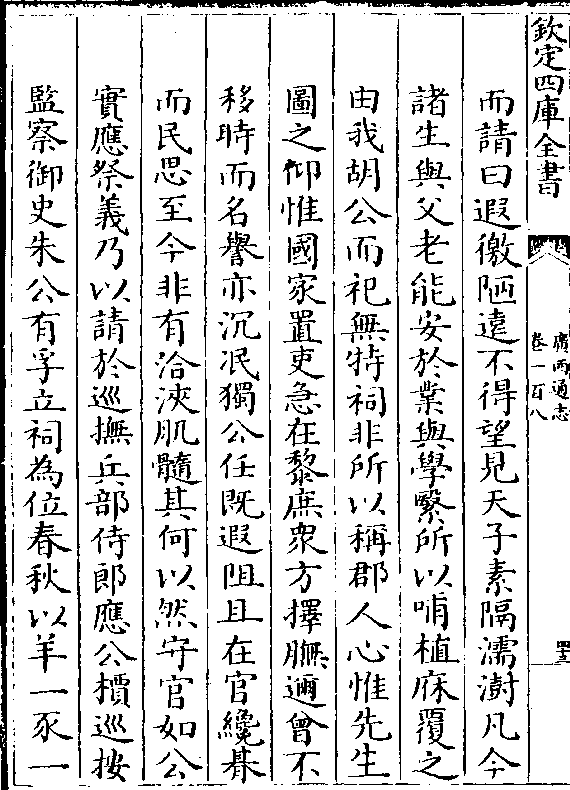 欽定四庫全書
廣西通志
卷一百八
四三
而請曰遐徼陋遠不得望見天子素隔濡澍凡今
諸生與父老能安於業與學繄所以哺植庥覆之
由我胡公而祀無特祠非所以稱郡人心惟先生
圖之仰惟國家置吏急在黎庶眾方擇膴邇曾不
移時而名譽亦沉冺獨公任既遐阻且在官纔朞
而民思至今非有洽浹肌髓其何以然守官如公
實應祭義乃以請於巡撫兵部侍郎應公檟巡按
監察御史朱公有孚立祠為位春秋以羊一豕一